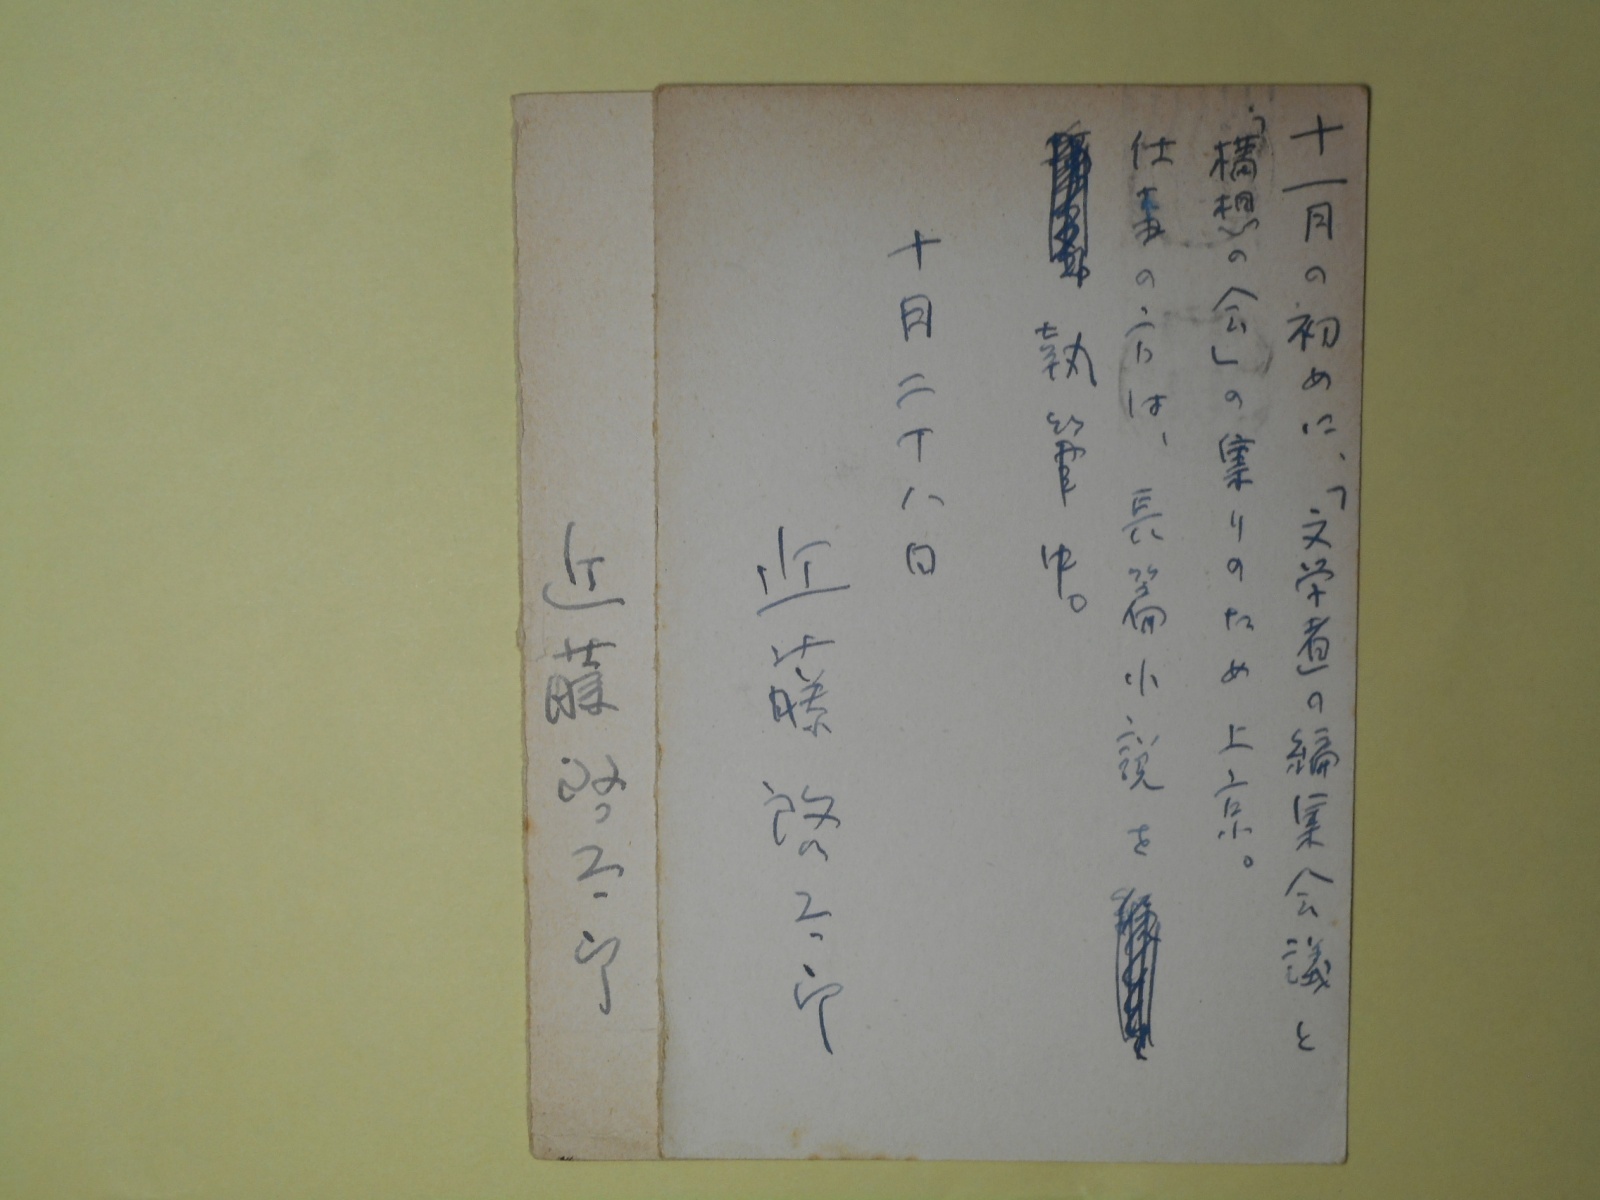 十一月の初めに、「文学者」の編集会議と
「構想の会」の集りのため上京。
仕事の方は、長篇小説を
執筆中。
十月二十八日
近藤啓太郎
近藤啓太郎